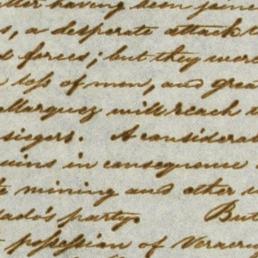 tter having been joine
s, a desperate attack t
d forces; but they were
loss of men, and grea
Marquez will reach t
siegers. A considerab
uins in consequence
mining and other w
ado's party. But
possession of Veracru